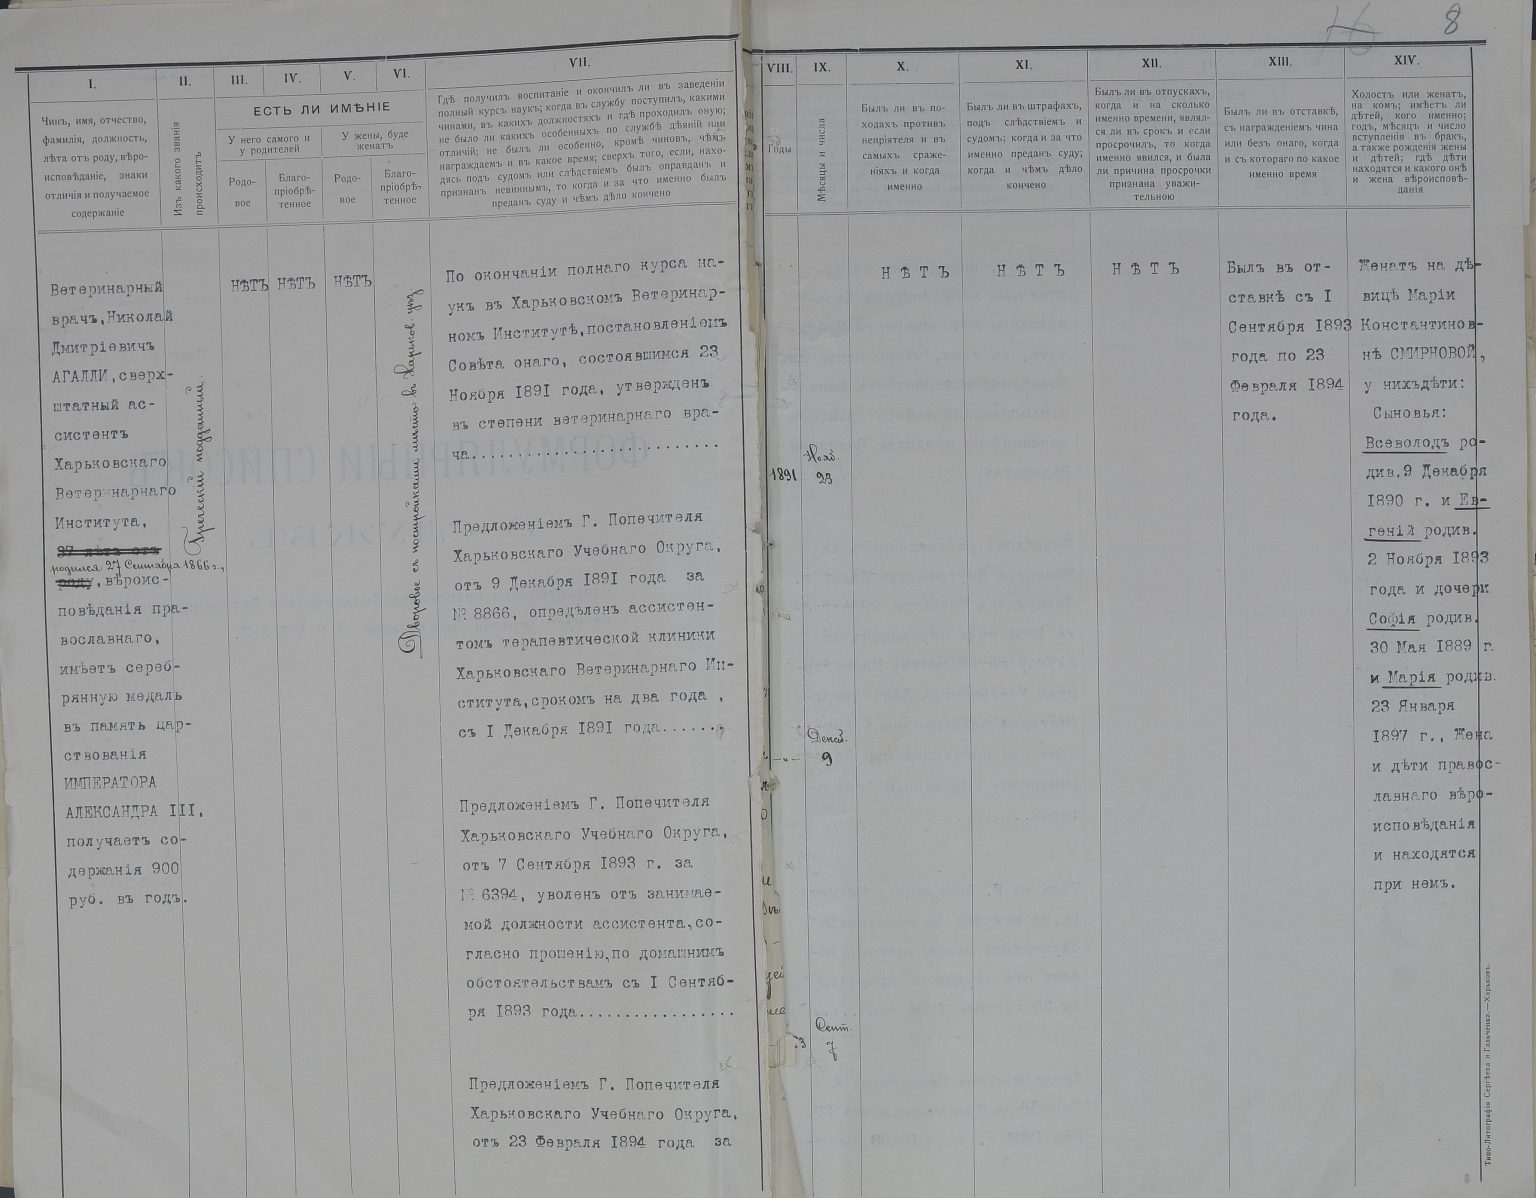 8
I.
II.
III.
IV.
V.
VI.
VII.
VIII.
IX.
X.
XI.
XII.
XIII.
XIV.
Чинъ, имя, отчество,
фамилія, должность,
лѣта отъ роду, вѣро-
исповѣданіе, знаки
отличія и получаемое
содержаніе
Изъ какого званія
происходитъ
ЕСТЬ ЛИ ИМѢНІЕ
У него самого и
у родителей
У жены, буде
женатъ
Родо-
вое
Благо-
пріобрѣ-
тенное
Родо-
вое
Благо-
пріобрѣ-
тенное
Гдѣ получилъ воспитаніе и окончилъ ли въ заведеніи
полный курсъ наукъ; когда въ службу поступилъ, какими
чинами, въ какихъ должностяхъ и гдѣ проходилъ оную;
не было ли какихъ особенныхъ по службѣ дѣяній или
отличій; не былъ ли особенно, кромѣ чиновъ, чѣмъ
награждаемъ и въ какое время; сверхъ того, если, нахо-
дясь подъ судомъ или слѣдствіемъ былъ оправданъ и
признанъ невиннымъ, то когда и за что именно былъ
преданъ суду и чѣмъ дѣло кончено
Годы
Мѣсяцы и числа
Былъ ли въ по-
ходахъ противъ
непріятеля и въ
самыхъ сраже-
ніяхъ и когда
именно
Былъ ли въ штрафахъ,
подъ слѣдствіемъ и
судомъ: когда и за что
именно преданъ суду;
когда и чѣмъ дѣло
кончено
Былъ ли въ отпускахъ,
когда и на сколько
именно времени, являл-
ся ли въ срокъ и если
просрочилъ, то когда
именно явился, и была
ли причина просрочки
признана уважи-
тельною
Былъ ли въ отставкѣ,
съ награжденіемъ чина
или безъ онаго, когда
и съ котораго по какое
именно время
Холостъ или женатъ,
на комъ; имѣетъ ли
дѣтей, кого именно;
годъ, мѣсяцъ и число
вступленія въ бракъ,
а также рожденія жены
и дѣтей; гдѣ дѣти
находятся и какого онѣ
и жена вѣроисповѣ-
данія
Ветеринарный
врачъ, Николай
Дмитріевичъ
АГАЛЛИ, сверх-
штатный ас-
систентъ
Харьковскаго
Ветеринарнаго
Института,
37 лѣтъ отъ
родился 27 Сентября 1866 г.,
роду, вѣроис-
повѣданія пра-
вославнаго,
имѣетъ сереб-
рянную медаль
въ память цар-
ствованія
ИМПЕРАТОРА
АЛЕКСАНДРА III,
получаетъ со-
держанія 900
руб. въ годъ.
Греческій подданный.
НѢТЪ
НѢТЪ
НѢТЪ
Дворовое съ постройками мѣсто въ Харьков. уѣз
По окончаніи полнаго курса на-
укъ въ Харьковскомъ Ветеринар-
номъ Институтѣ, постановленіемъ
Совѣта онаго, состоявшимся 23
Ноября 1891 года, утвержденъ
въ степени ветеринарнаго вра-
ча.......................
Предложеніемъ Г. Попечителя
Харьковскаго Учебнаго Округа,
отъ 9 Декабря 1891 года за
№ 8866, опредѣленъ ассистен-
томъ терапевтической клиники
Харьковскаго Ветеринарнаго Ин-
ститута, срокомъ на два года ,
съ I Декабря 1891 года.......
Предложеніемъ Г. Попечителя
Харьковскаго Учебнаго Округа,
отъ 7 Сентября 1893 г. за
№ 6394, уволенъ отъ занимае-
мой должности ассистента, со-
гласно прошенію, по домашнимъ
обстоятельствамъ съ I Сентяб-
ря 1893 года................
Предложеніемъ Г. Попечителя
Харьковскаго Учебнаго Округа,
отъ 23 Февраля 1894 года за
1891
Нояб.
23
-"-
Декаб.
9
3
Сент.
7
НѢТЪ
НѢТЪ
НѢТЪ
Былъ въ от-
ставкѣ съ I
Сентября 1893
года по 23
Февраля 1894
года.
Женатъ на дѣ-
вицѣ Маріи
Константинов-
нѣ СМИРНОВОЙ,
у нихъ дѣти:
Сыновья:
Всеволодъ ро-
див. 9 Декабря
1890 г. и Ев-
геній родив.
2 Ноября 1893
года и дочери
Софія родив.
30 Мая 1889 г.
и Марія родив.
23 Января
1897 г., Жена
и дѣти правос-
лавнаго вѣро-
исповѣданія
и находятся
при немъ.
Типо-Литографія Сергѣева и Гальченка.—Харьковъ.